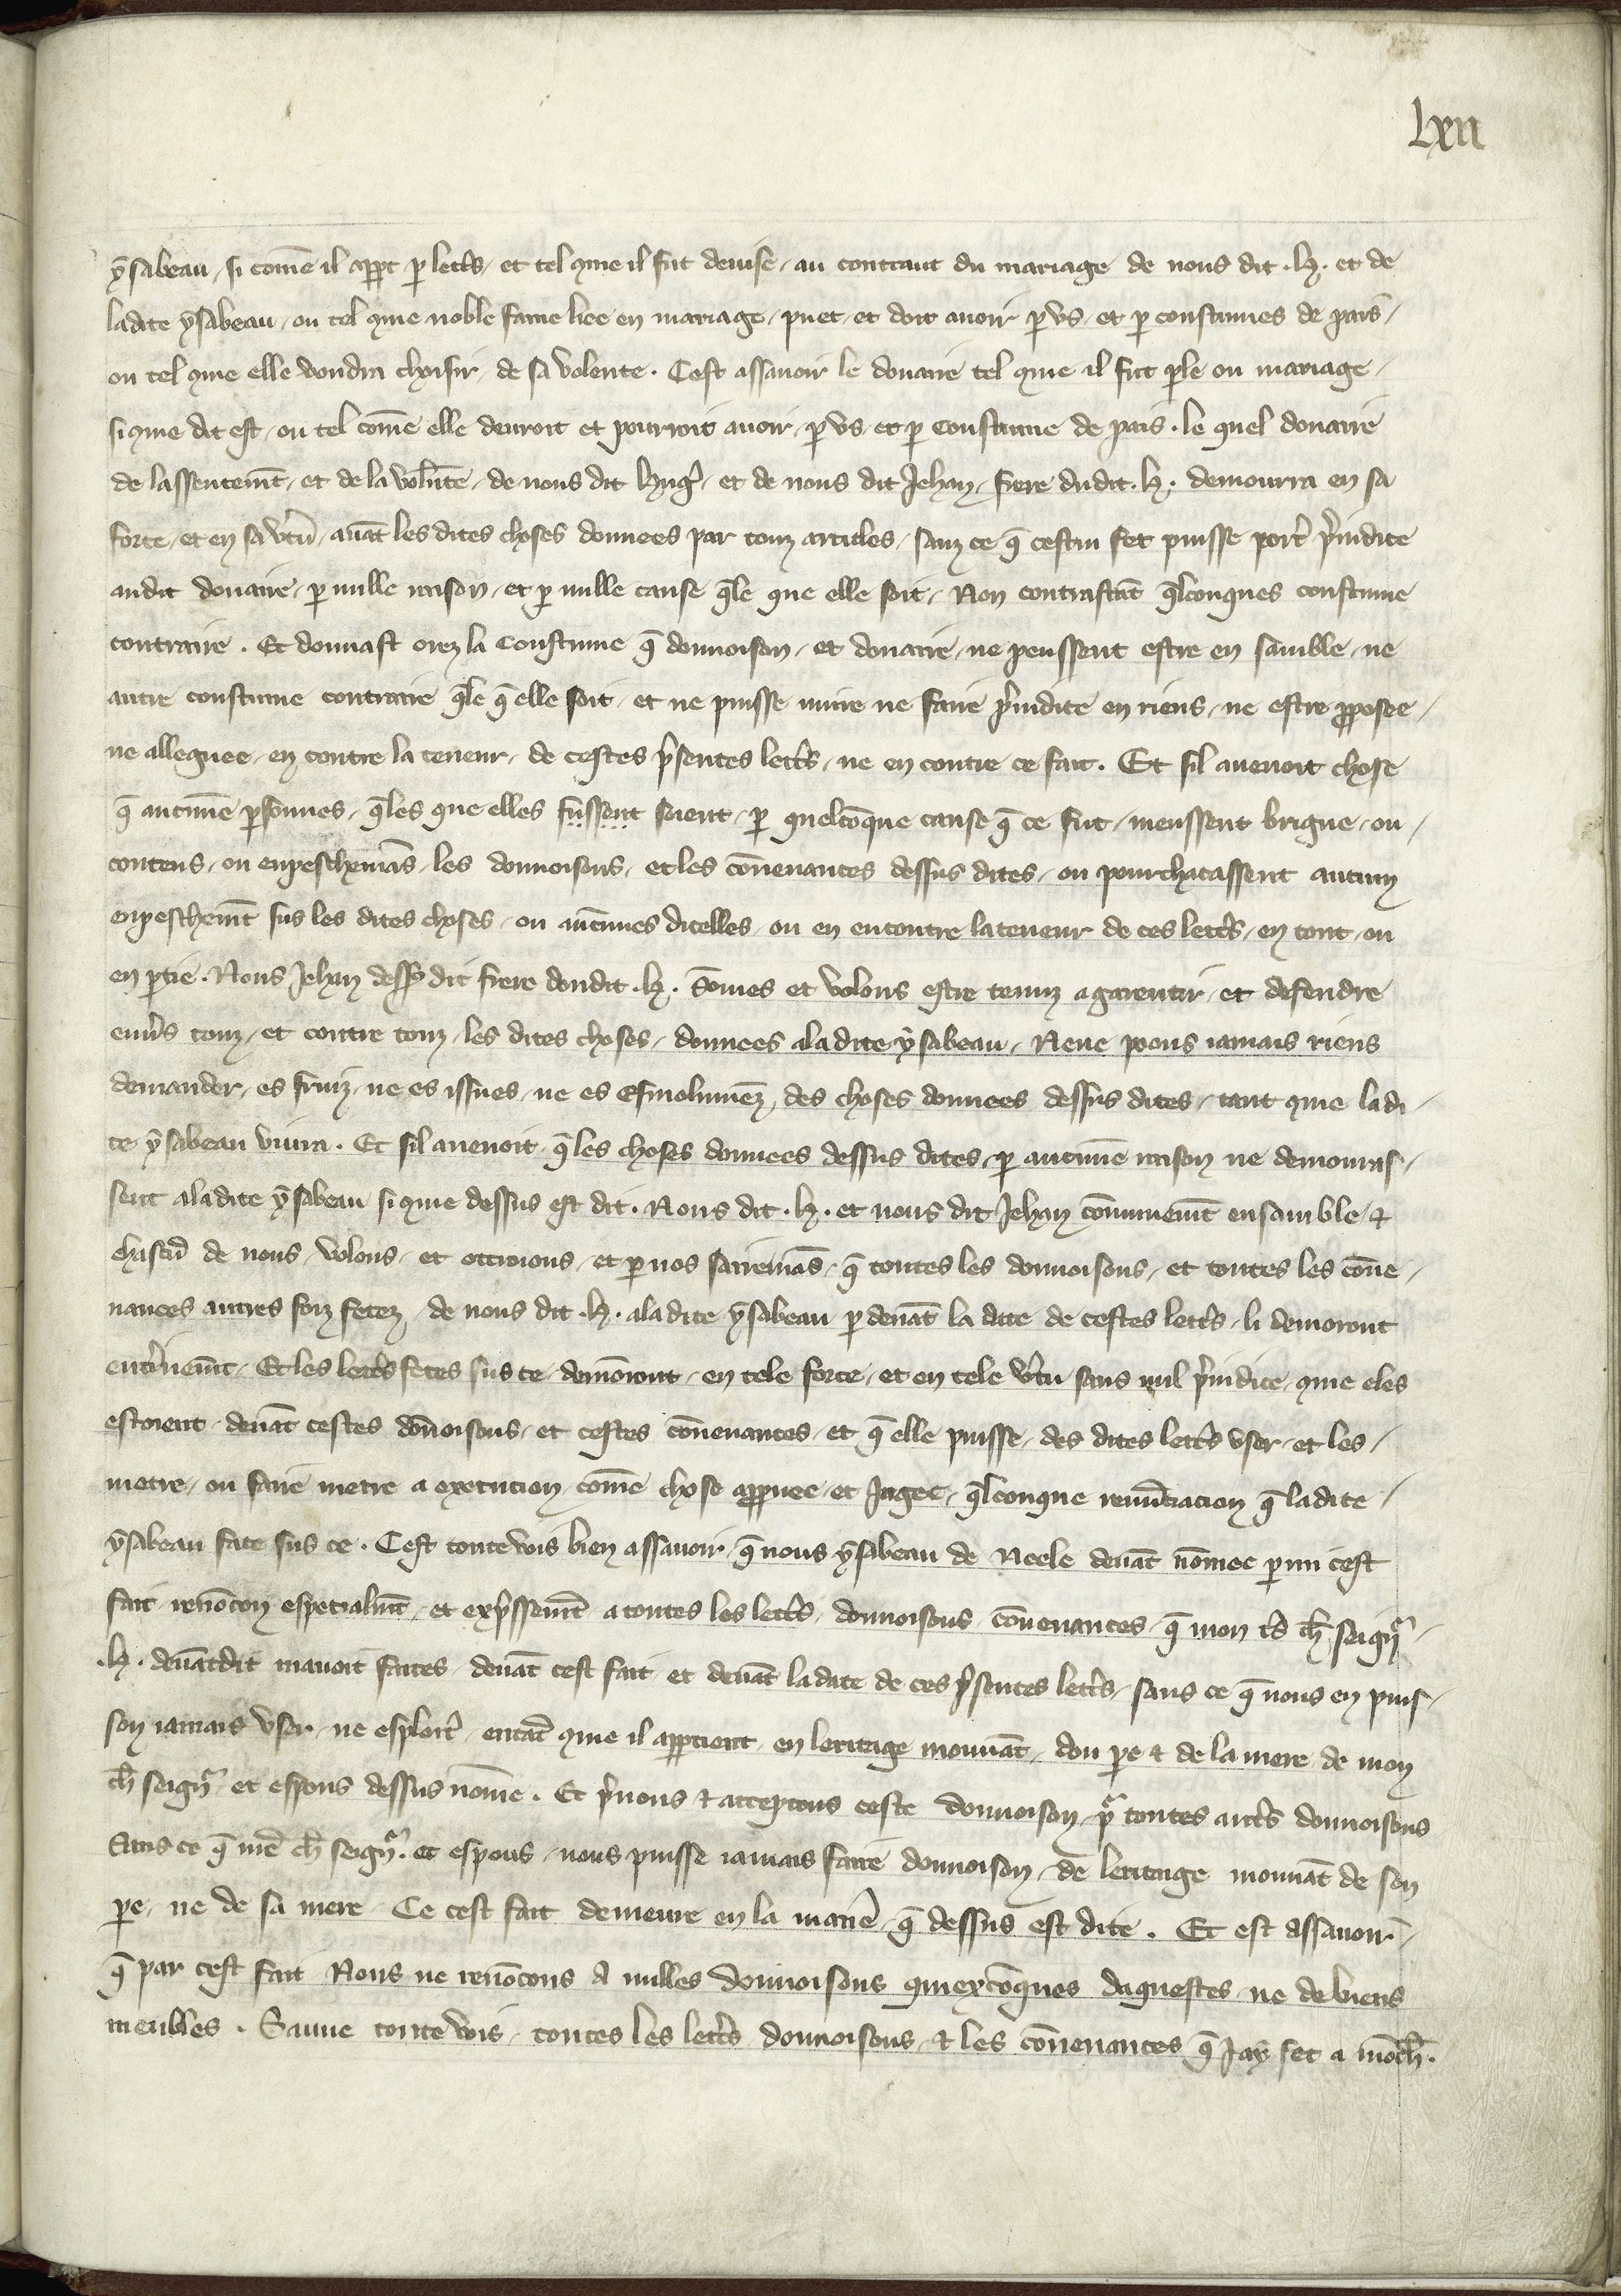 lxii
ysabeau / si com̄e il appt p lectˢ / et tel que il fut deuise / au contraut du mariage de nous dit .h. et de
ladite ysabeau / ou tel que noble fame liee en mariage / puet / et doit auoir p vs / et p coustumes de pais /
ou tel que elle voudra choisir / de sa volente . Cest assauoir le douaire tel que il fut ple ou mariage /
si que dit est / ou tel com̄e elle deuroit et pourroit auoir / p vs / et p coustume de pais . le quel douaire
de lassentem̄t / et de la volūte / de nous dit hug / et de nous dit Jehan / frere dudit .h. demourra en sa
force / et en sa vtu / auāt les dites choses donnees par touz articles / sanz ce q̄ cestui fet puisse port' p̄iudice
audit douaire / p nulle raison / et p nulle cause q̄le que elle soit / Non contrastāt q̄lconques coustume
contraire . Et donnast orez la Coustume q̄ donnoison / et douaire / ne peussent estre en samble / ne
autre coustume contraire q̄le q̄ elle soit / et ne puisse nuire ne faire p̄iudice en riens / ne estre pposee /
ne alleguee / en contre la teneur / de cestes p̄sentes lect̄s / ne en contre ce fait . Et sil auenoit chose
q̄ aucune psonnes / q̄les que elles fussent soient / p quelcōque cause q̄ ce fut / meussent brigue / ou /
contens / ou enpeschemās / les donnoisons / et les cōuenances dessus dites / ou pourchacassent aucun
enpeschem̄t sus les dites choses / ou aucunes dicelles / ou en encontre la teneur de ces lect̄s / en tout / ou
en ptie . Nous Jehan dess⁹ dit frere doudit .h. Sōmes et volons estre tenuz a garentir / et defendre
enu̍s touz / et contre touz / les dites choses / donnees a la dite ysabeau / Ne ne poons iamais riens
demander / es fruiz / ne es issues / ne es esmolumēz / des choses donnees dessus dites / tant que la di /
te ysabeau viura . Et sil auenoit / q̄ les choses donnees dessus dites / p aucune raison ne demouras /
sent a la dite ysabeau si que dessus est dit . Nous dit .h. et nous dit Jehan cōmunem̄t ensamble / &
chascū de nous / volons / et ottroions / et p nos sairemās / q̄ toutes les donnoisons / et toutes les cōue /
nances autres foiz fetez / de nous dit .h. a la dite ysabeau p deuāt la date de cestes lect̄s / li demoront
ent̍inem̄t / Et les lect̄s fetes sus ce / demōront / en tele force / et en tele v̍tu sans nul p̄iudice / que eles
estoient / deuāt cestes dōnoisons / et cestes cōuenances / et q̄ elle puisse / des dites lect̄s vser / et les /
metre / ou faire metre a execucion / com̄e chose appuee / et Jugee / q̄lconque renūciacion q̄ ladite /
ysabeau face sus ce . Cest toutevois bien assauoir / q̄ nous ysabeau de Neele deuāt nōmee p mi cest
fait / renōcon especialm̄t / et exp̄ssem̄t a toutes les lect̄s / donnoisons / cōuenances / q̄ mon t̄s ch̄ seign̄
.h. deuātdit mauoit faites / deuāt cest fait / et deuāt la date de ces p̄sentes lect̄s / sans ce q̄ nous en puis /
son iamais vser / ne esploit̍ / entāt que il apptient / en leritage mouuāt / dou pe & de la mere de mon
ch̄ seign̄ / et espous dessus nōme . Et p̄nons & acceptons ceste donnoison / p̄ toutes aut̄s donnoisons
Sans ce q̄ mē ch̄ seign̄ . et espous / nous puisse iamais faire donnoison / de leritage mouuāt de son
pe / ne de sa mere / Ce cest fait demeure en la manie / q̄ dessus est dite . Et est assauoir /
q̄ par cest fait Nous ne renōcons A nulles donnoisons quexcōques daquestes / ne de biens
meubles . Sauue toutevois / toutes les lect̄s donnoisons / & les cōuenances q̄ Jay fet a mōch̄ .